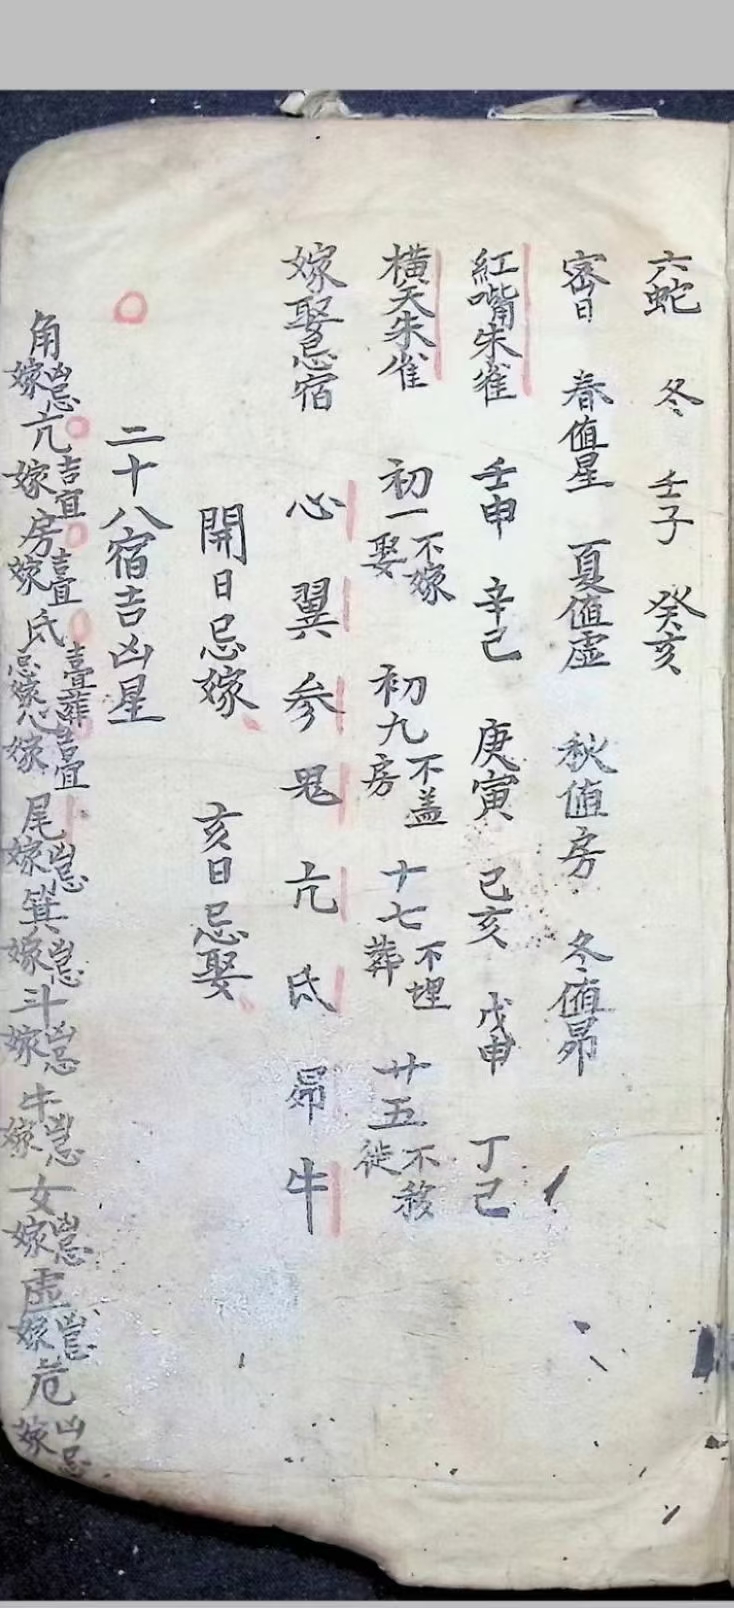 六蛇　冬　壬子　癸亥
密日　春值星　夏值虛　秋值房　冬值昴
紅嘴朱雀　壬申　辛己　庚寅　己亥　戊申　丁己
橫天朱雀　初一不嫁娶　初九不盖房　十七不埋葬　廿五不移徙
嫁娶忌宿　心　翼　参　鬼　亢　氐　昴　牛
開日忌嫁　亥日忌娶
二十八宿吉凶星
角凶忌嫁　亢吉宜嫁　房吉宜嫁　氐忌嫁　心吉宜嫁　尾凶忌嫁　箕凶忌嫁　斗凶忌嫁　牛凶忌嫁　女凶忌嫁　虛凶忌嫁　危凶忌嫁